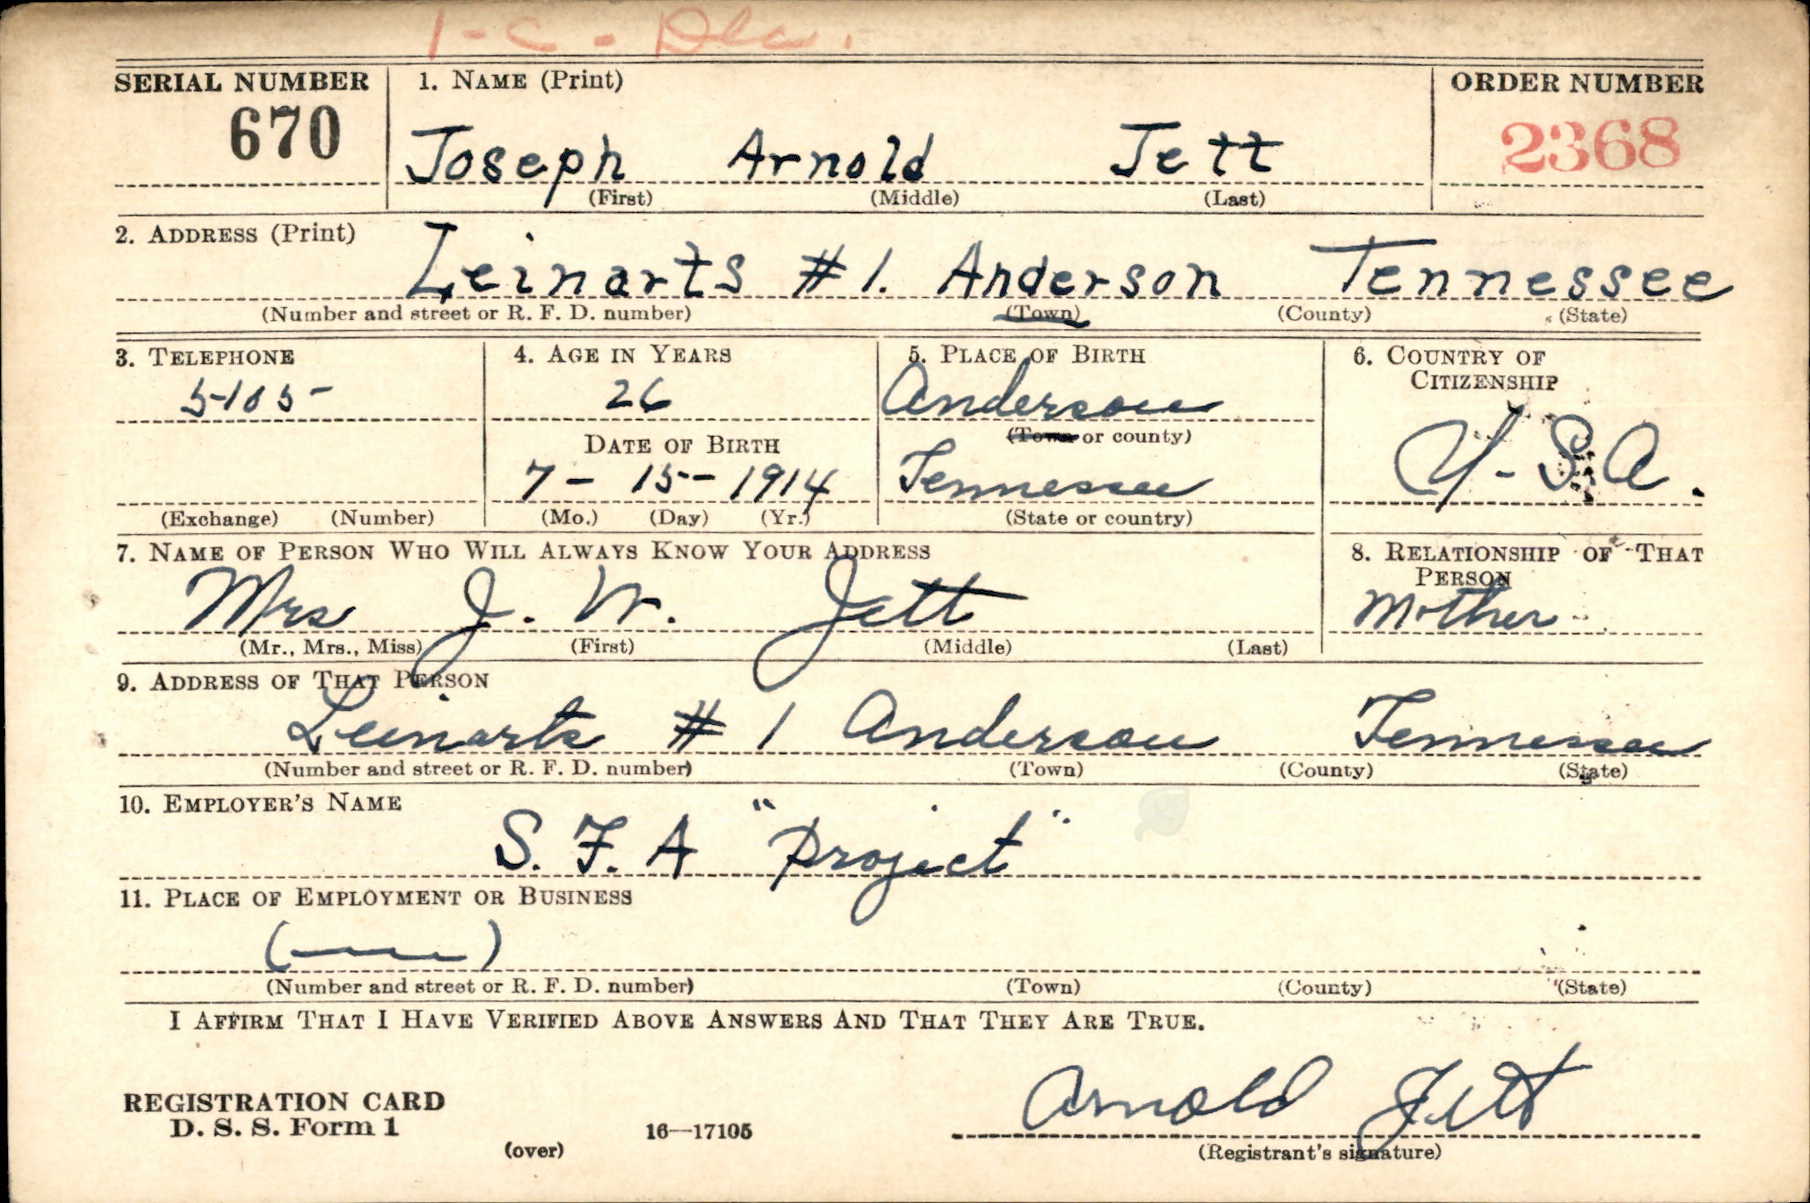 1-C-Dec.
SERIAL NUMBER 1. NAME (Print) ORDER NUMBER
670 Joseph Arnold Jett 2368
(First) (Middle) (Last)
2. ADDRESS (Print)
Leinarts #1. Anderson Tennessee
(Number and street or R. F. D. number) (Town) (County) (State)
3. TELEPHONE 4. AGE IN YEARS 5. PLACE OF BIRTH 6. COUNTRY OF CITIZENSHIP
5105- 26 Anderson
(Town or county)
DATE OF BIRTH
7-15-1914 Tennessee U-S.A.
(Exchange) (Number) (Mo.) (Day) (Yr.) (State or country)
7. NAME OF PERSON WHO WILL ALWAYS KNOW YOUR ADDRESS 8. RELATIONSHIP OF THAT PERSON
Mrs J. W. Jett Mother
(Mr., Mrs., Miss) (First) (Middle) (Last)
9. ADDRESS OF THAT PERSON
Leinarts #1 Anderson Tennessee
(Number and street or R. F. D. number) (Town) (County) (State)
10. EMPLOYER'S NAME
S. F. A "Project"
11. PLACE OF EMPLOYMENT OR BUSINESS
(——)
(Number and street or R. F. D. number) (Town) (County) (State)
I AFFIRM THAT I HAVE VERIFIED ABOVE ANSWERS AND THAT THEY ARE TRUE.
Arnold Jett
REGISTRATION CARD
D. S. S. Form 1 16—17105
(over) (Registrant's signature)